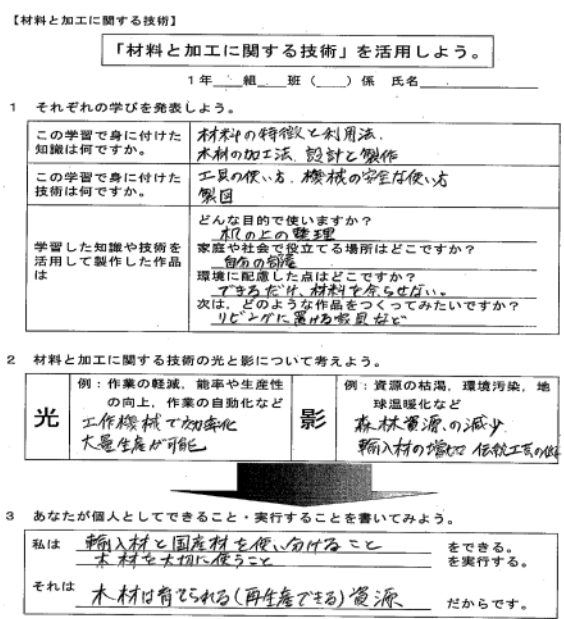 【材料と加工に関する技術】
「材料と加工に関する技術」を活用しよう。
1年___組___班（___）係 氏名
1 それぞれの学びを発表しよう。
この学習で身に付けた
知識は何ですか。
材料の特徴と利用法、
木材の加工法、設計と製作
この学習で身に付けた
技術は何ですか。
工具の使い方、機械の安全な使い方
製図
学習した知識や技術を
活用して製作した作品
は
どんな目的で使いますか？
机の上の整理
家庭や社会で役立てる場所はどこですか？
自分の部屋
環境に配慮した点はどこですか？
できるだけ、材料を余らせない。
次は、どのような作品をつくってみたいですか？
リビングに置ける家具など
2 材料と加工に関する技術の光と影について考えよう。
光
例：作業の軽減，能率や生産性
の向上，作業の自動化など
工作機械で効率化
大量生産が可能
影
例：資源の枯渇，環境汚染，地
球温暖化など
森林資源の減少
輸入材の増加 伝統工芸の
3 あなたが個人としてできること・実行することを書いてみよう。
私は 輸入材と国産材を使い分けること をできる。
木材を大切に使うこと を実行する。
それは 木材は育てられる（再生産できる）資源 だからです。